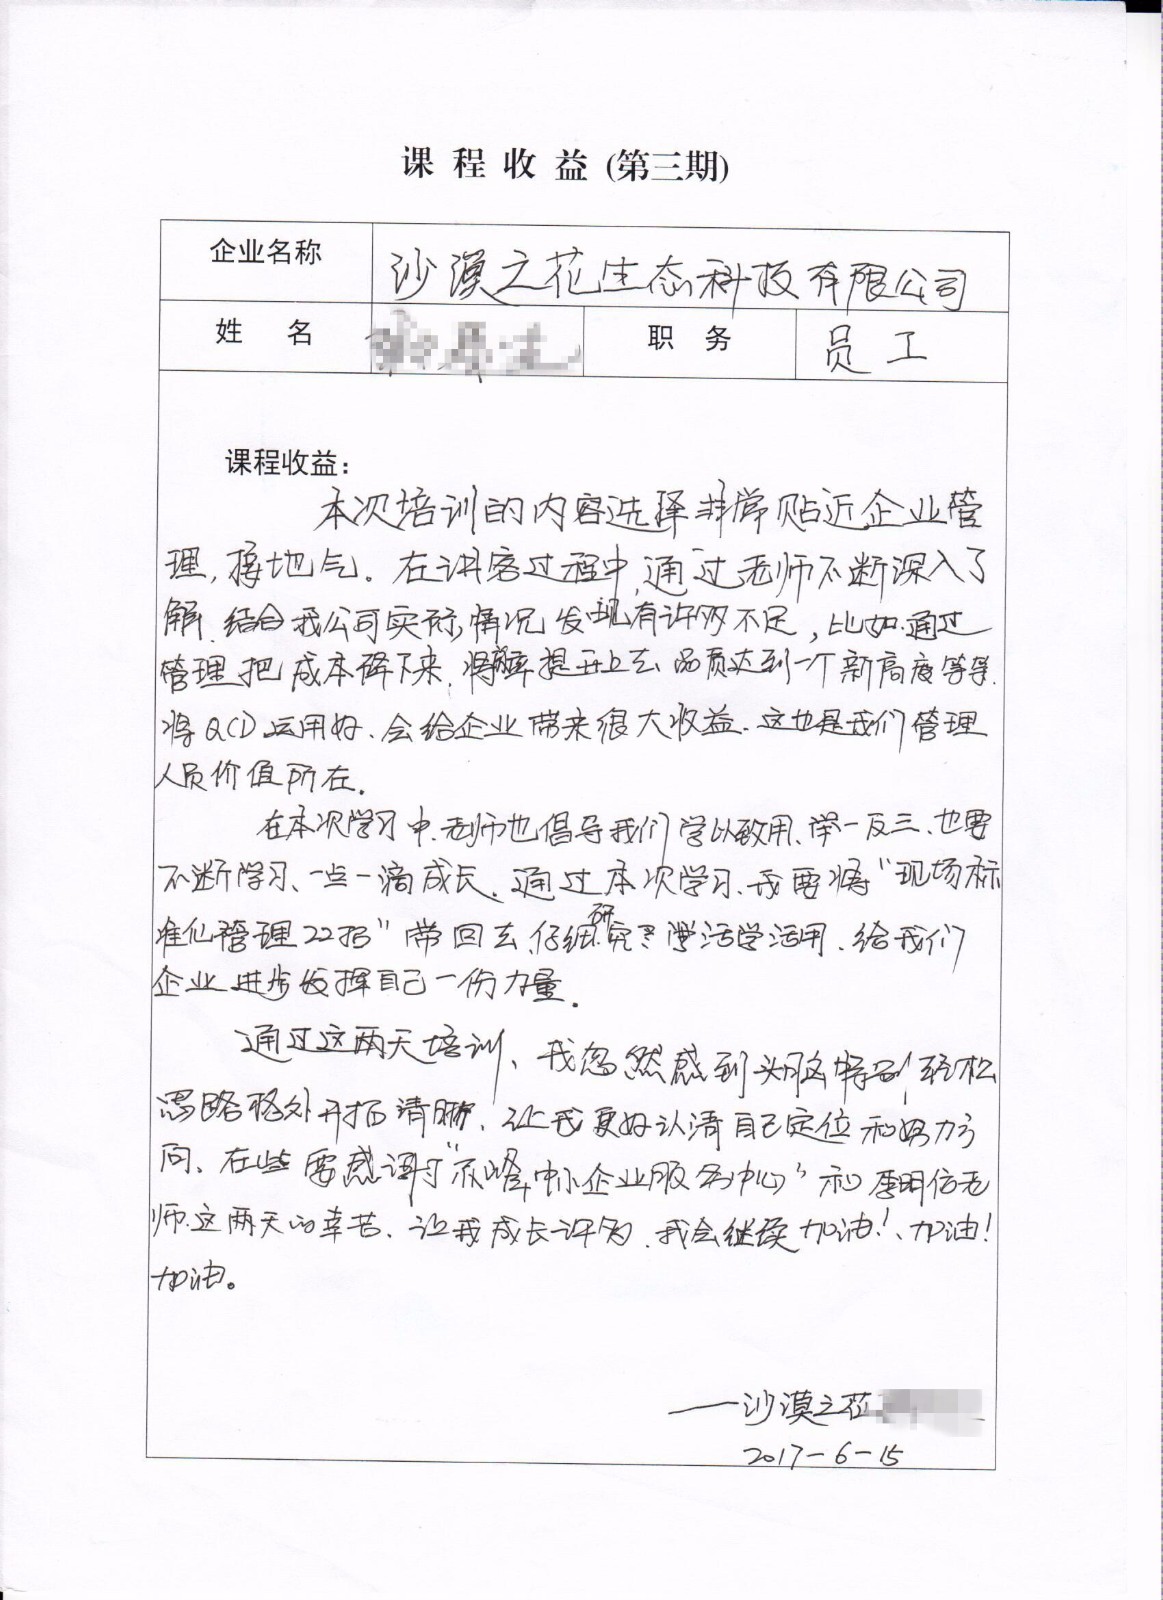 课程收益(第三期)
企业名称 沙漠之花生态科技有限公司
姓名 职务 员工
课程收益：
本次培训的内容选择非常贴近企业管
理,接地气。在讲客过程中,通过老师不断深入了
解、结合我公司实际情况发现有许多不足,比如:通过
管理把成本降下来、将 提升上去 品质达到一个新高度等等.
将QCD运用好、会给企业带来很大收益.这也是我们管理
人员价值所在.
在本次学习中、老师也倡导我们学以致用、举一反三、也要
不断学习、一点一滴成长.通过本次学习、我要将“现场标
准化管理22招”带回去仔细研究 学活学活用、给我们
企业进步发挥自己一份力量.
通过这两天培训、我忽然感到头脑特别轻松
思路格外开拓清晰、让我更好认清自己定位和努力方
向、在些要感谢“赤峰中小企业服务中心”和李明信老
师.这两天的辛苦、让我成长许多、我会继续加油!、加油!
加油。
——沙漠之花
2017-6-15